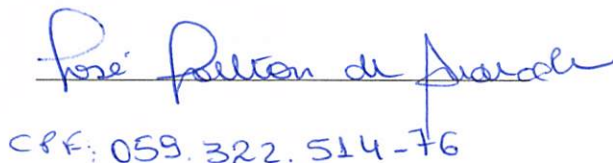 José Joelton de Andrade
CPF: 059.322.514-76